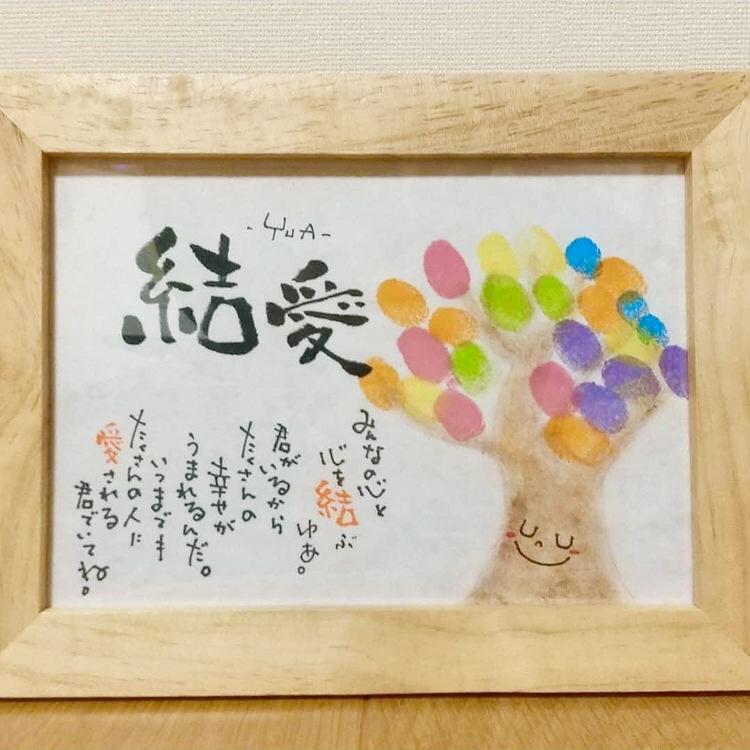 -YuA-
結愛
みんなの心と
心を結ぶ
ゆあ。
君がいるから
たくさんの
幸せが
うまれるんだ。
いつまでも
たくさんの人に
愛される
君でいてね。